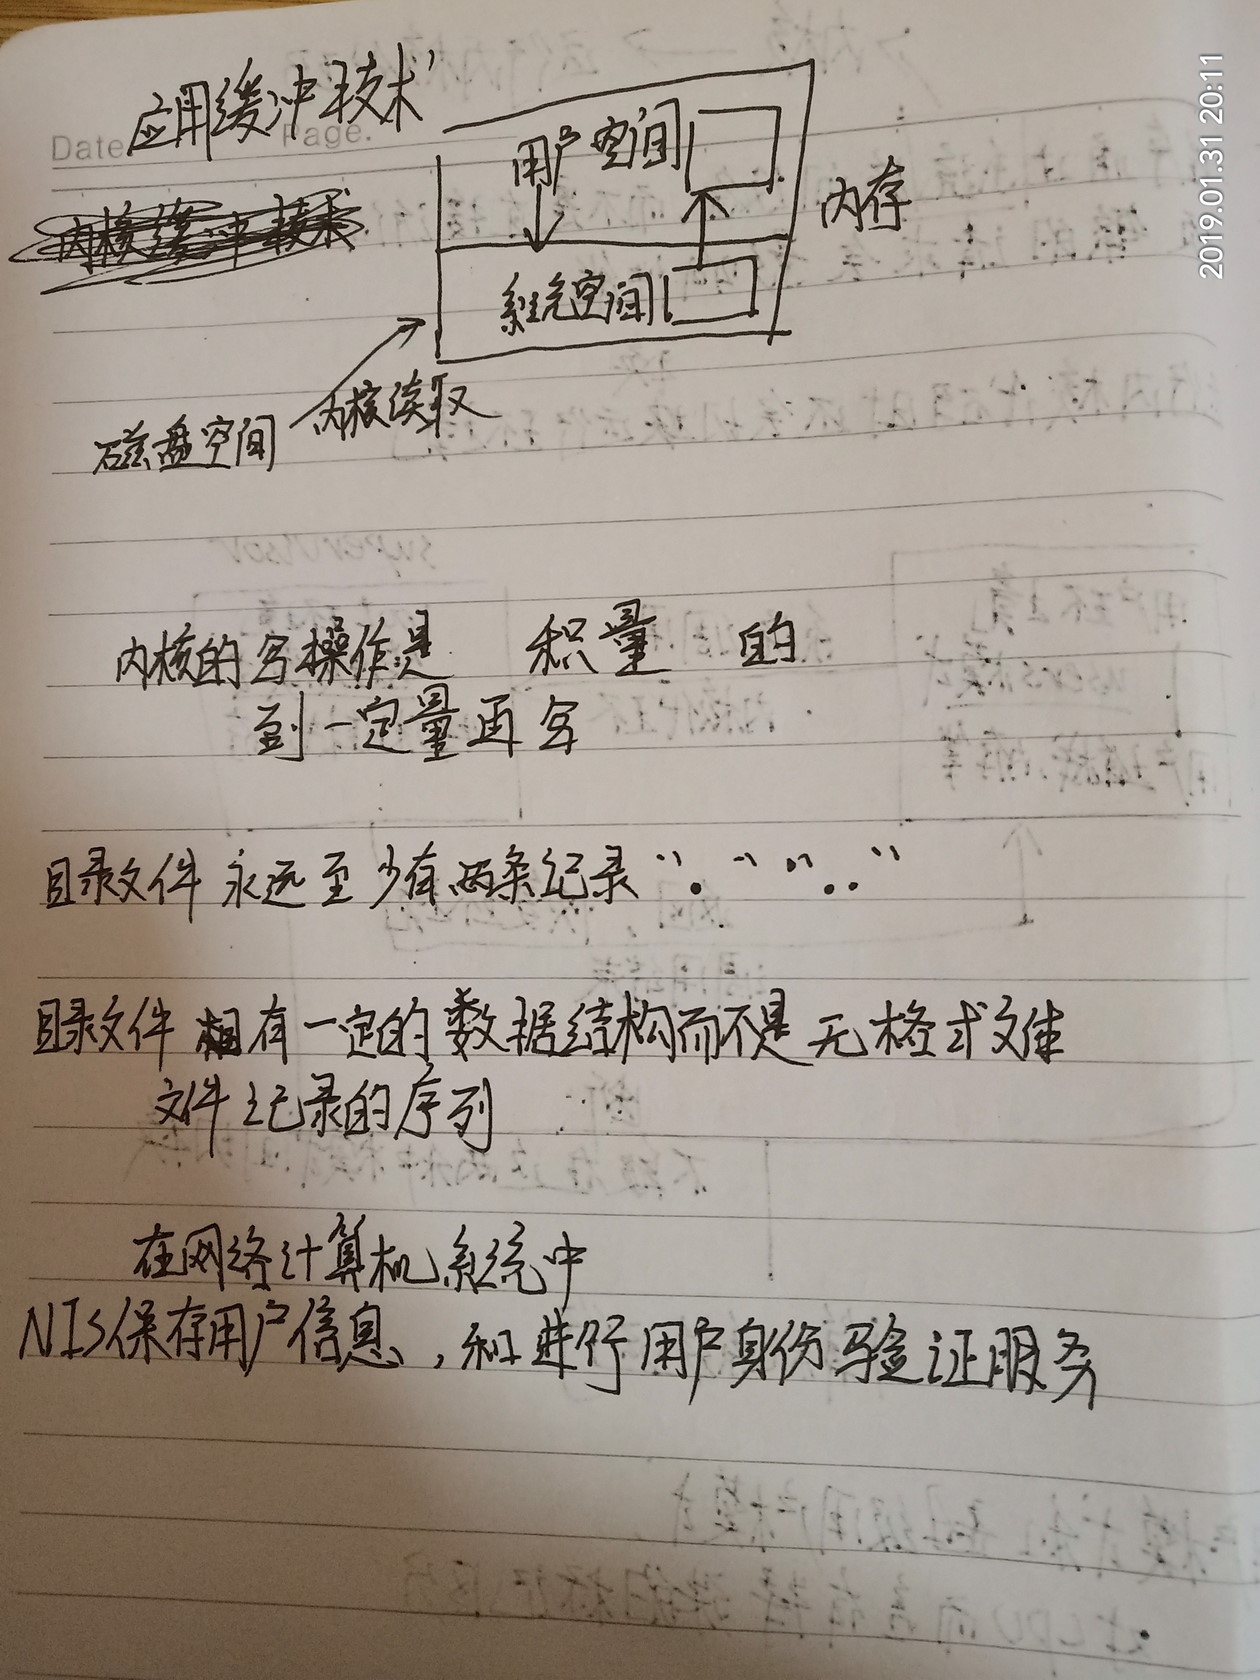 应用缓冲技术
Date Page.
内核缓冲技术
用户空间
内存
系统空间
内核读取
磁盘空间
内核的写操作是 积量 的
到一定量再写
目录文件 永远至少有两条记录 “.” “..”
目录文件 有一定的数据结构而不是无格式文件
文件记录的序列
在网络计算机系统中
NIS保存用户信息,和进行用户身份验证服务
2019.01.31 20:11